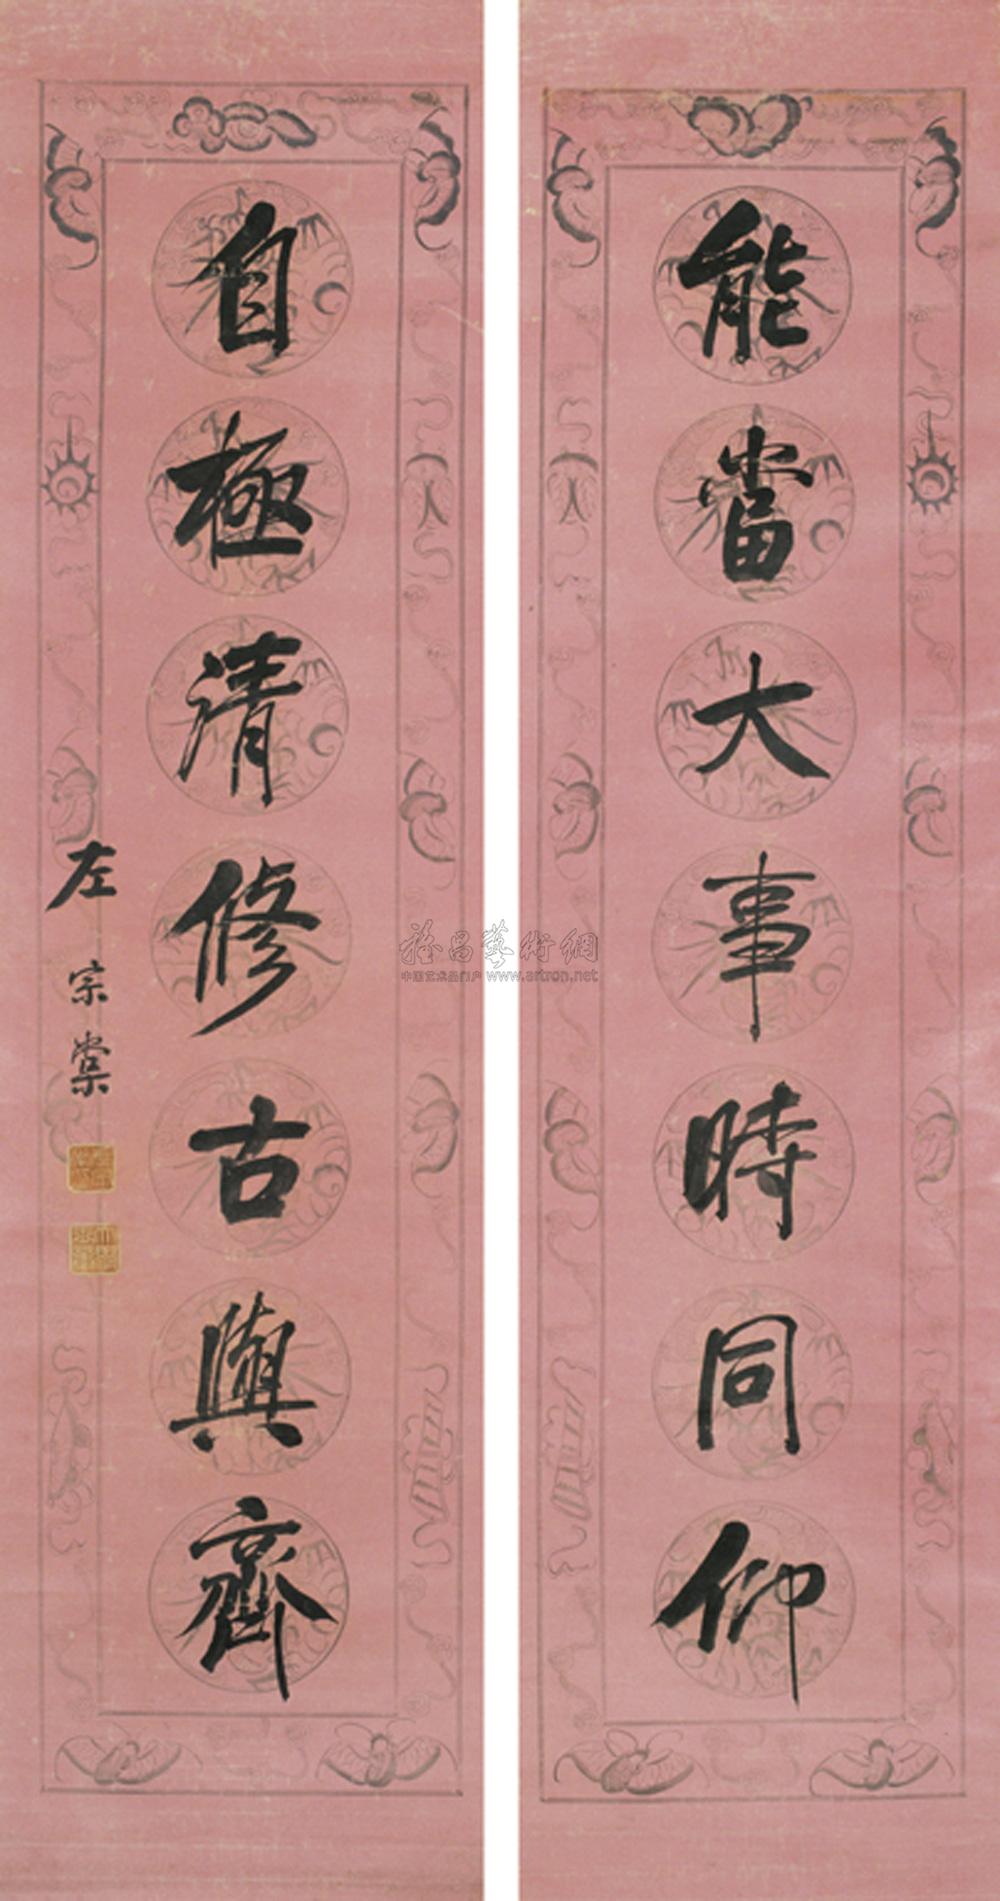 能當大事時同仰
自極清修古與齊
左宗棠
雅昌藝術網
中国艺术品门户 www.artron.net